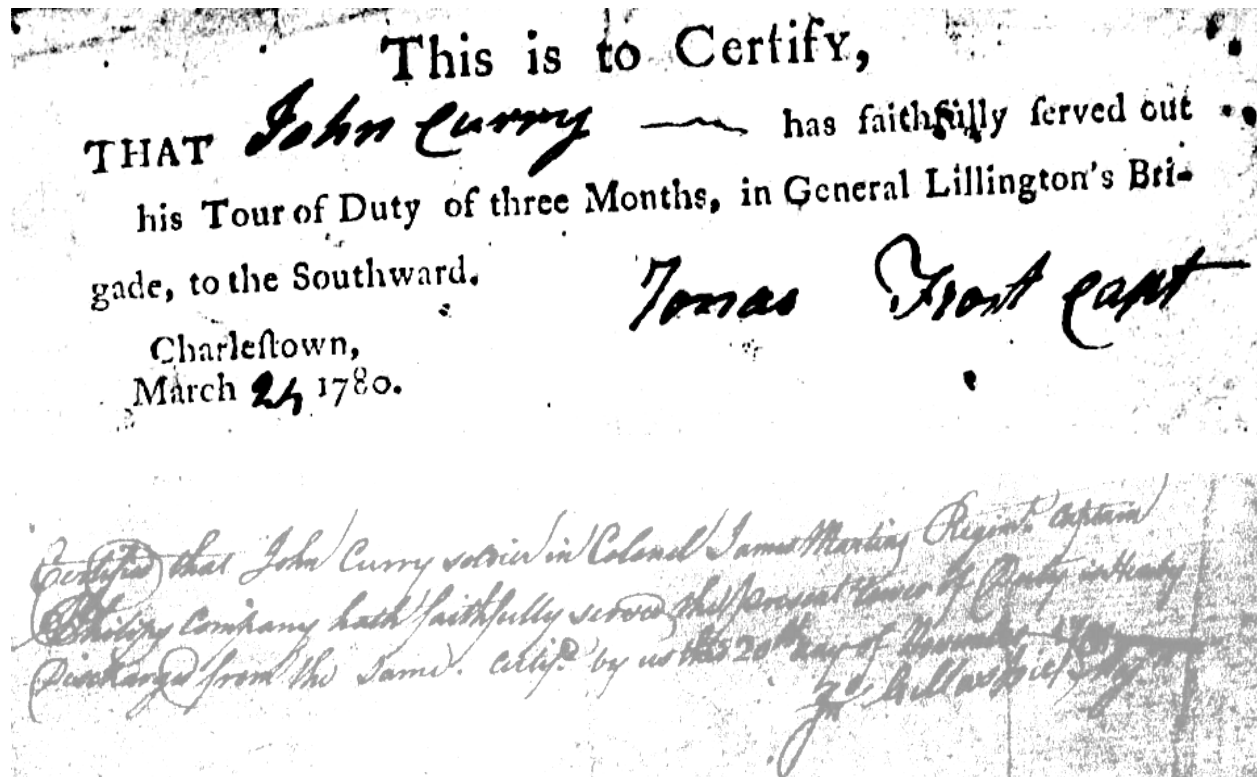 This is to Certify,
THAT John Curry — has faithfully ſerved out
his Tour of Duty of three Months, in General Lillington's Bri-
gade, to the Southward.
Jonas Frost Capt
Charleſtown,
March 24 1780.
Certified that John Curry soldier in Colonel James Martins Regimt. Captain
Philips Company hath faithfully served the present tower of Duty is Hereby
Discharged from the Same. Certifd. by us this 20th day of November